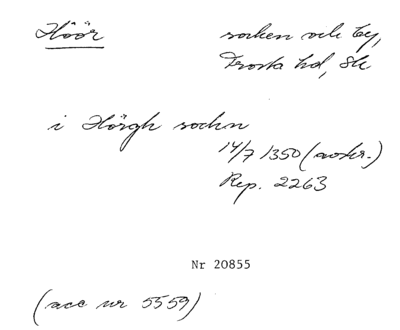 Höör
socken och by,
Frosta hd, Sk
i Hörgh sochn
14/7 1350 (avskr.)
Rep. 2263
Nr 20855
(acc nr 5559)